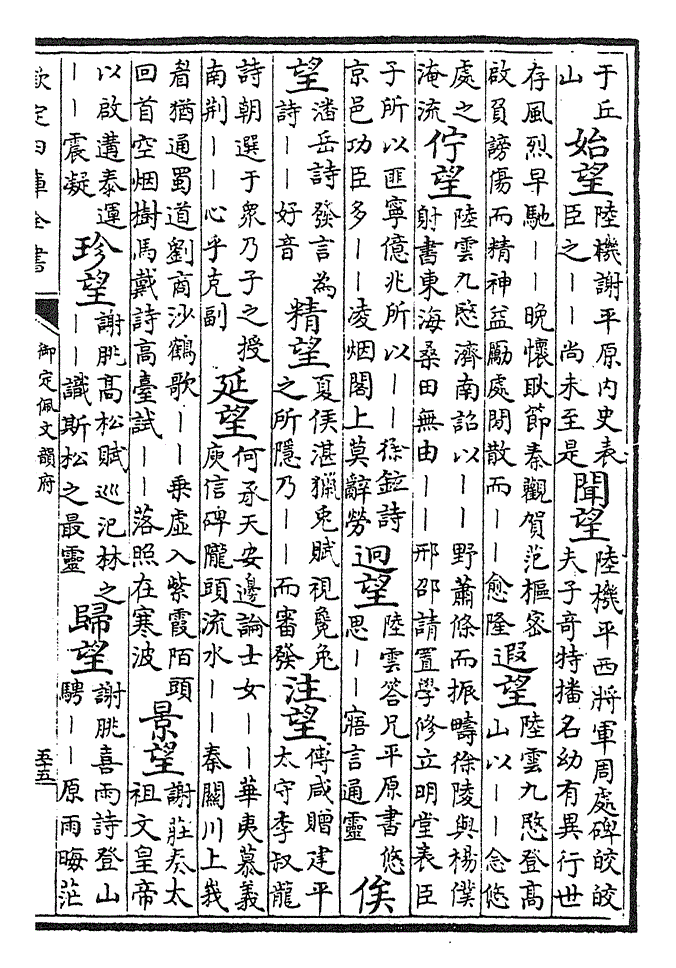 于丘
山
始望
陸機謝平原內史表
臣之——尚未至是
聞望
陸機平西將軍周處碑皎皎
夫子奇特播名幼有異行世
存風烈早馳——晚懷耿節秦觀賀范樞密
啟員謗傷而精神益勵處閒散而——愈隆
遐望
陸雲九愍登高
山以——念悠
處之
淹流
佇望
陸雲九愍濟南詔以——野蕭條而振疇徐陵與楊僕
射書東海桑田無由——邢邵請置學修立明堂表臣
子所以匪寧億兆所以——徐鉉詩
京邑功臣多——凌烟閣上莫辭勞
迥望
陸雲答兄平原書悠
思——寤言通靈
俟
望
潘岳詩發言為
詩——好音
精望
夏侯湛獵兔賦視毚兔
之所隱乃——而審發
注望
傅咸贈建平
太守李叔龍
詩朝選于衆乃子之授
南荆——心乎克副
延望
何承天安邊論士女——華夷慕義
庾信碑隴頭流水——秦關川上我
看猶通蜀道劉商沙鶴歌——乘虛入紫霞陌頭
回首空烟樹馬戴詩高臺試——落照在寒波
景望
謝莊奏太
祖文皇帝
以啟遘泰運
——震凝
珍望
謝朓高松賦巡汜林之
——識斯松之最靈
歸望
謝朓喜雨詩登山
騁——原雨晦茫
欽定四庫全書
御定佩文韻府
五十五